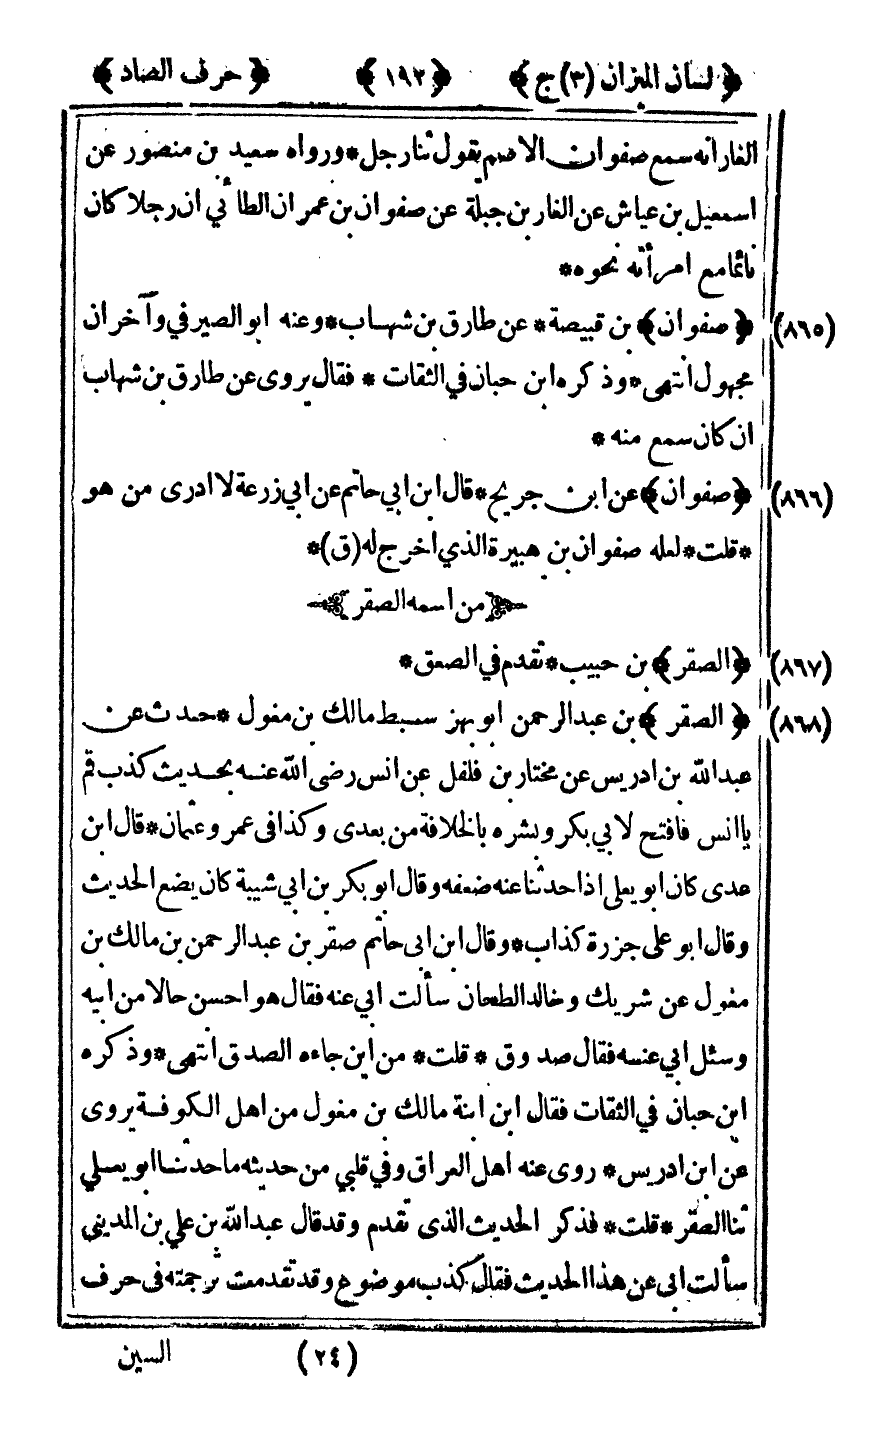 ﴿ لسان الميزان (٣) ج ﴾ ﴿ ١٩٢ ﴾ ﴿ حرف الصاد ﴾
الغار انه سمع صفوان الاصم يقول ثنا رجل * ورواه سعيد بن منصور عن
اسمعيل بن عياش عن الغار بن جبلة عن صفوان بن عمران الطائي ان رجلا كان
نائما مع امرأته نحوه *
(٨٦٥) ﴿ صفوان ﴾ بن قبيصة * عن طارق بن شهاب * وعنه ابو الصيرفي وآخران
مجهول انتهى * وذكره ابن حبان في الثقات * فقال يروى عن طارق بن شهاب
ان كان سمع منه *
(٨٦٦) ﴿ صفوان ﴾ عن ابن جريج * قال ابن ابي حاتم عن ابي زرعة لا ادرى من هو
* قلت * لعله صفوان بن هبيرة الذي اخرج له (ق) *
من اسمه الصقر
(٨٦٧) ﴿ الصقر ﴾ بن حبيب * تقدم في الصعق *
(٨٦٨) ﴿ الصقر ﴾ بن عبد الرحمن ابو بهز سبط مالك بن مغول * حدث عن
عبد الله بن ادريس عن مختار بن فلفل عن انس رضى الله عنه بحديث كذب قم
يا انس فافتح لابي بكر وبشره بالخلافة من بعدى وكذا فى عمر وعثمان * قال ابن
عدى كان ابو يعلى اذا حدثنا عنه ضعفه وقال ابو بكر بن ابي شيبة كان يضع الحديث
وقال ابو على جزرة كذاب * وقال ابن ابى حاتم صقر بن عبد الرحمن بن مالك بن
مغول عن شريك وخالد الطحان سألت ابي عنه فقال هو احسن حالا من ابيه
وسئل ابي عنه فقال صدوق * قلت * من اين جاءه الصدق انتهى * وذكره
ابن حبان في الثقات فقال ابن ابنة مالك بن مغول من اهل الكوفة يروى
عن ابن ادريس * روى عنه اهل العراق وفي قلبي من حديثه ما حدثنا ابو يعلي
ثنا الصقر * قلت * فذكر الحديث الذى تقدم وقد قال عبد الله بن علي بن المديني
سألت ابى عن هذا الحديث فقال كذب موضوع وقد تقدمت ترجمته فى حرف
(٢٤) السين